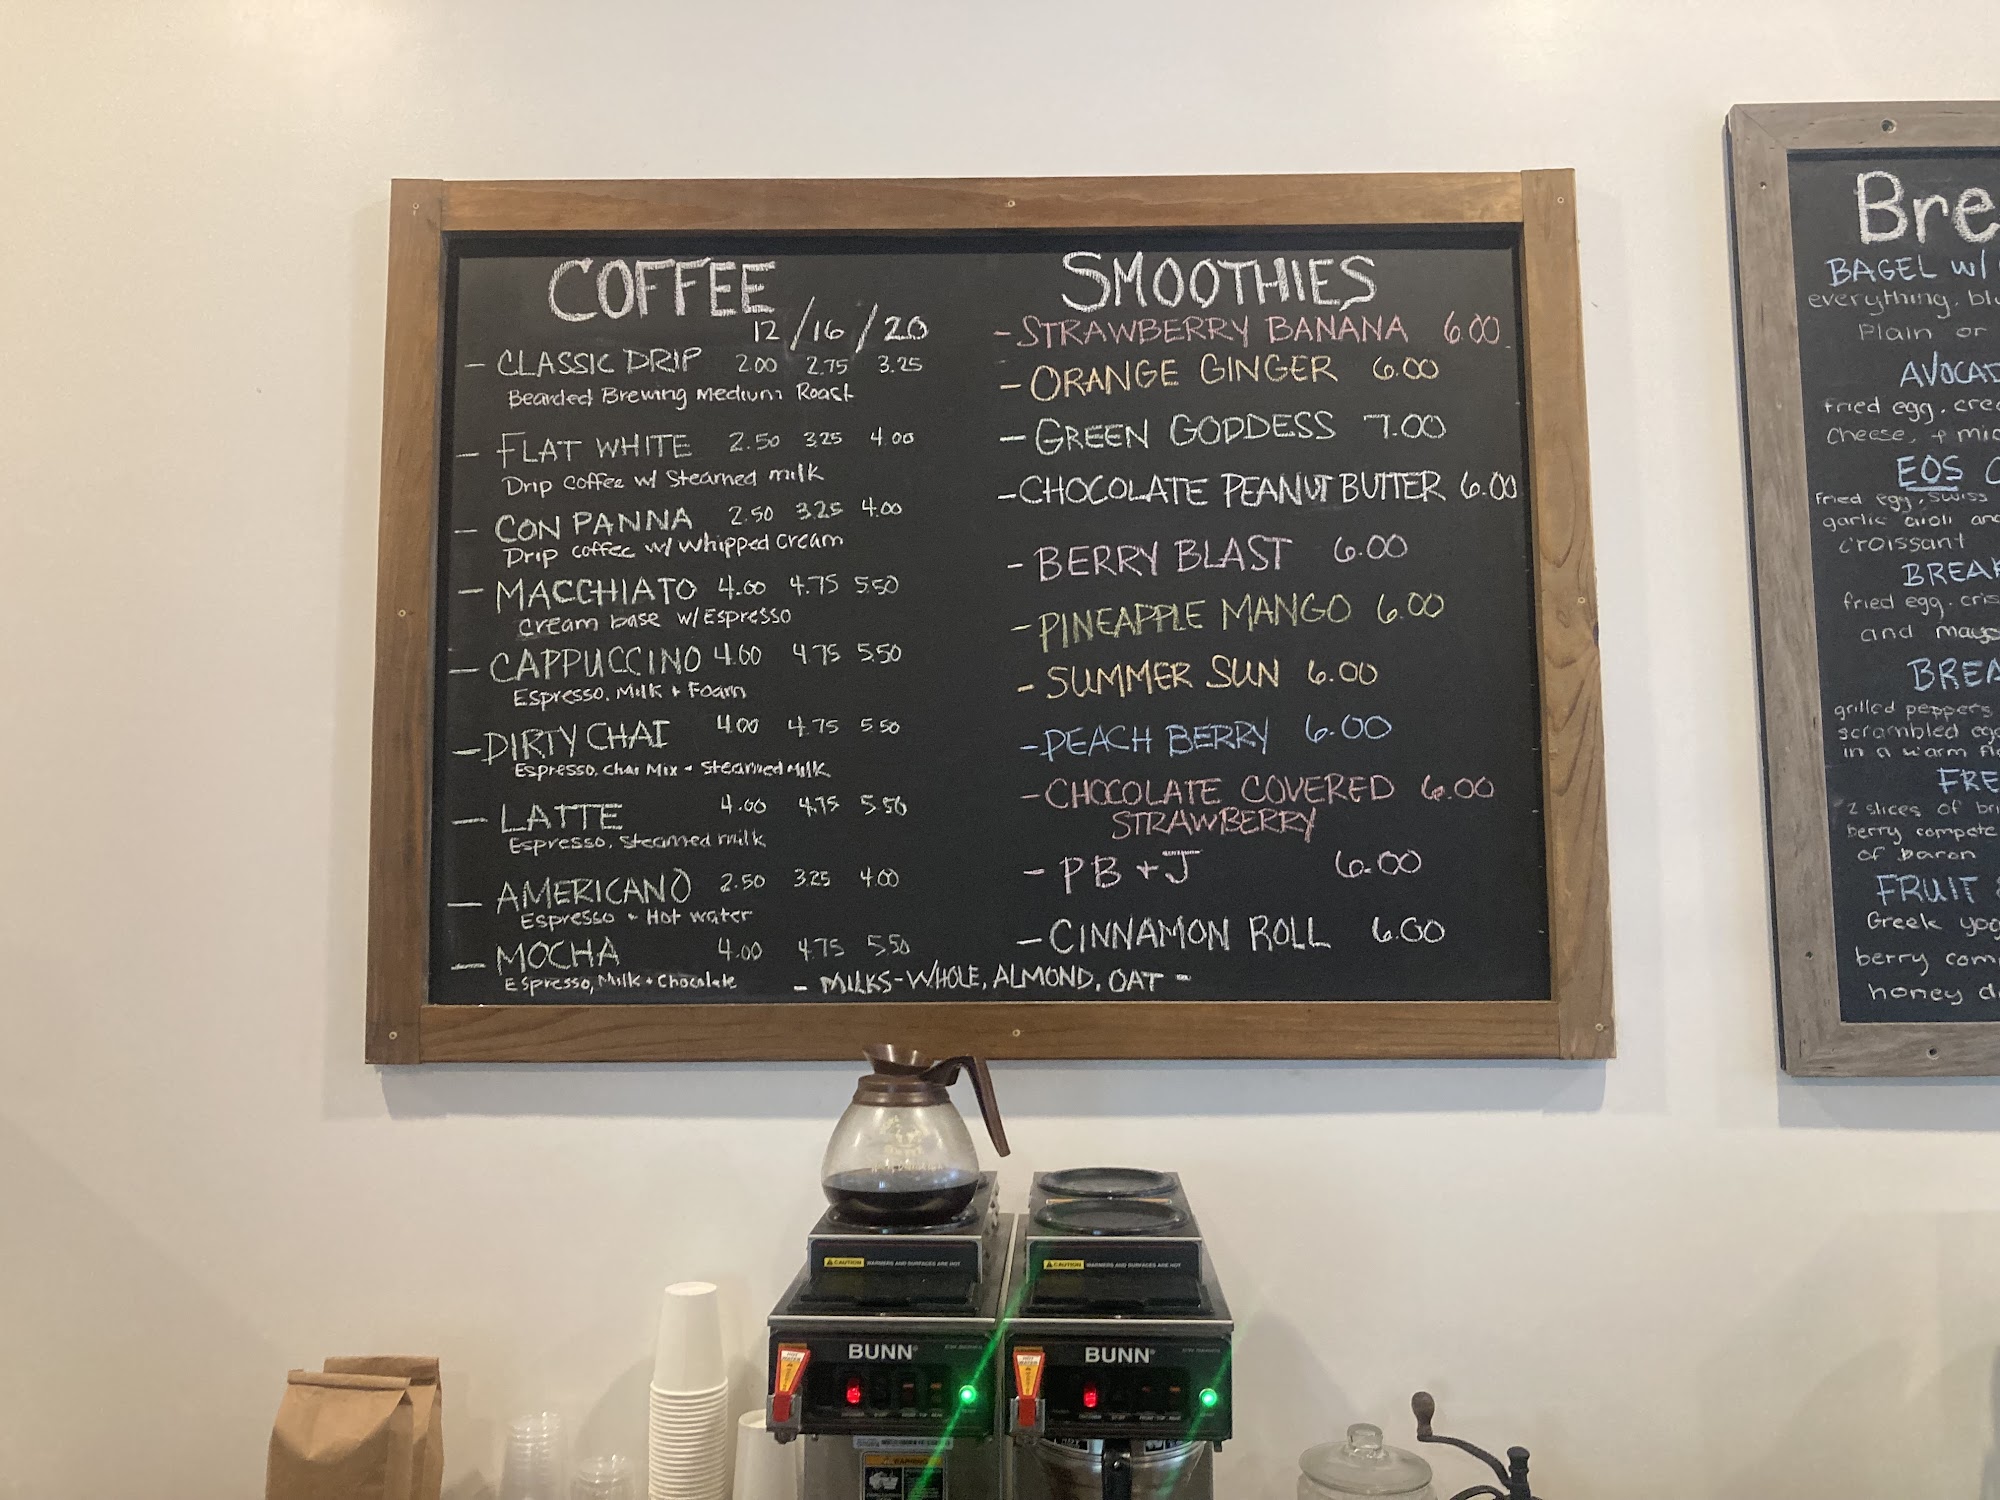 COFFEE
12/16/20
- CLASSIC DRIP 2.00 2.75 3.25
Bearded Brewing Medium Roast
- FLAT WHITE 2.50 3.25 4.00
Drip coffee w/ Steamed milk
- CON PANNA 2.50 3.25 4.00
Drip coffee w/ whipped cream
- MACCHIATO 4.00 4.75 5.50
cream base w/ Espresso
- CAPPUCCINO 4.00 4.75 5.50
Espresso, Milk + Foam
- DIRTY CHAI 4.00 4.75 5.50
Espresso, Chai Mix + Steamed Milk
- LATTE 4.00 4.75 5.50
Espresso, Steamed milk
- AMERICANO 2.50 3.25 4.00
Espresso + Hot water
- MOCHA 4.00 4.75 5.50
Espresso, Milk + Chocolate
- MILKS - WHOLE, ALMOND, OAT -
SMOOTHIES
- STRAWBERRY BANANA 6.00
- ORANGE GINGER 6.00
- GREEN GODDESS 7.00
- CHOCOLATE PEANUT BUTTER 6.00
- BERRY BLAST 6.00
- PINEAPPLE MANGO 6.00
- SUMMER SUN 6.00
- PEACH BERRY 6.00
- CHOCOLATE COVERED 6.00
STRAWBERRY
- PB + J 6.00
- CINNAMON ROLL 6.00
Bre
BAGEL w/
everything, blu
Plain or
AVOCAD
fried egg, crea
cheese, + mic
EOS C
fried egg, swiss
garlic aioli and
croissant
BREAK
fried egg, cris
and mayo
BREA
grilled peppers,
scrambled egg
in a warm flo
FRE
2 slices of bri
berry compete
of bacon
FRUIT &
Greek yog
berry com
honey d
CAUTION WARMERS AND SURFACES ARE HOT
CAUTION WARMERS AND SURFACES ARE HOT
BUNN
BUNN
WARNING